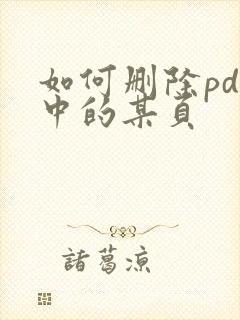 如何删除pd
中的某页
諸葛涼